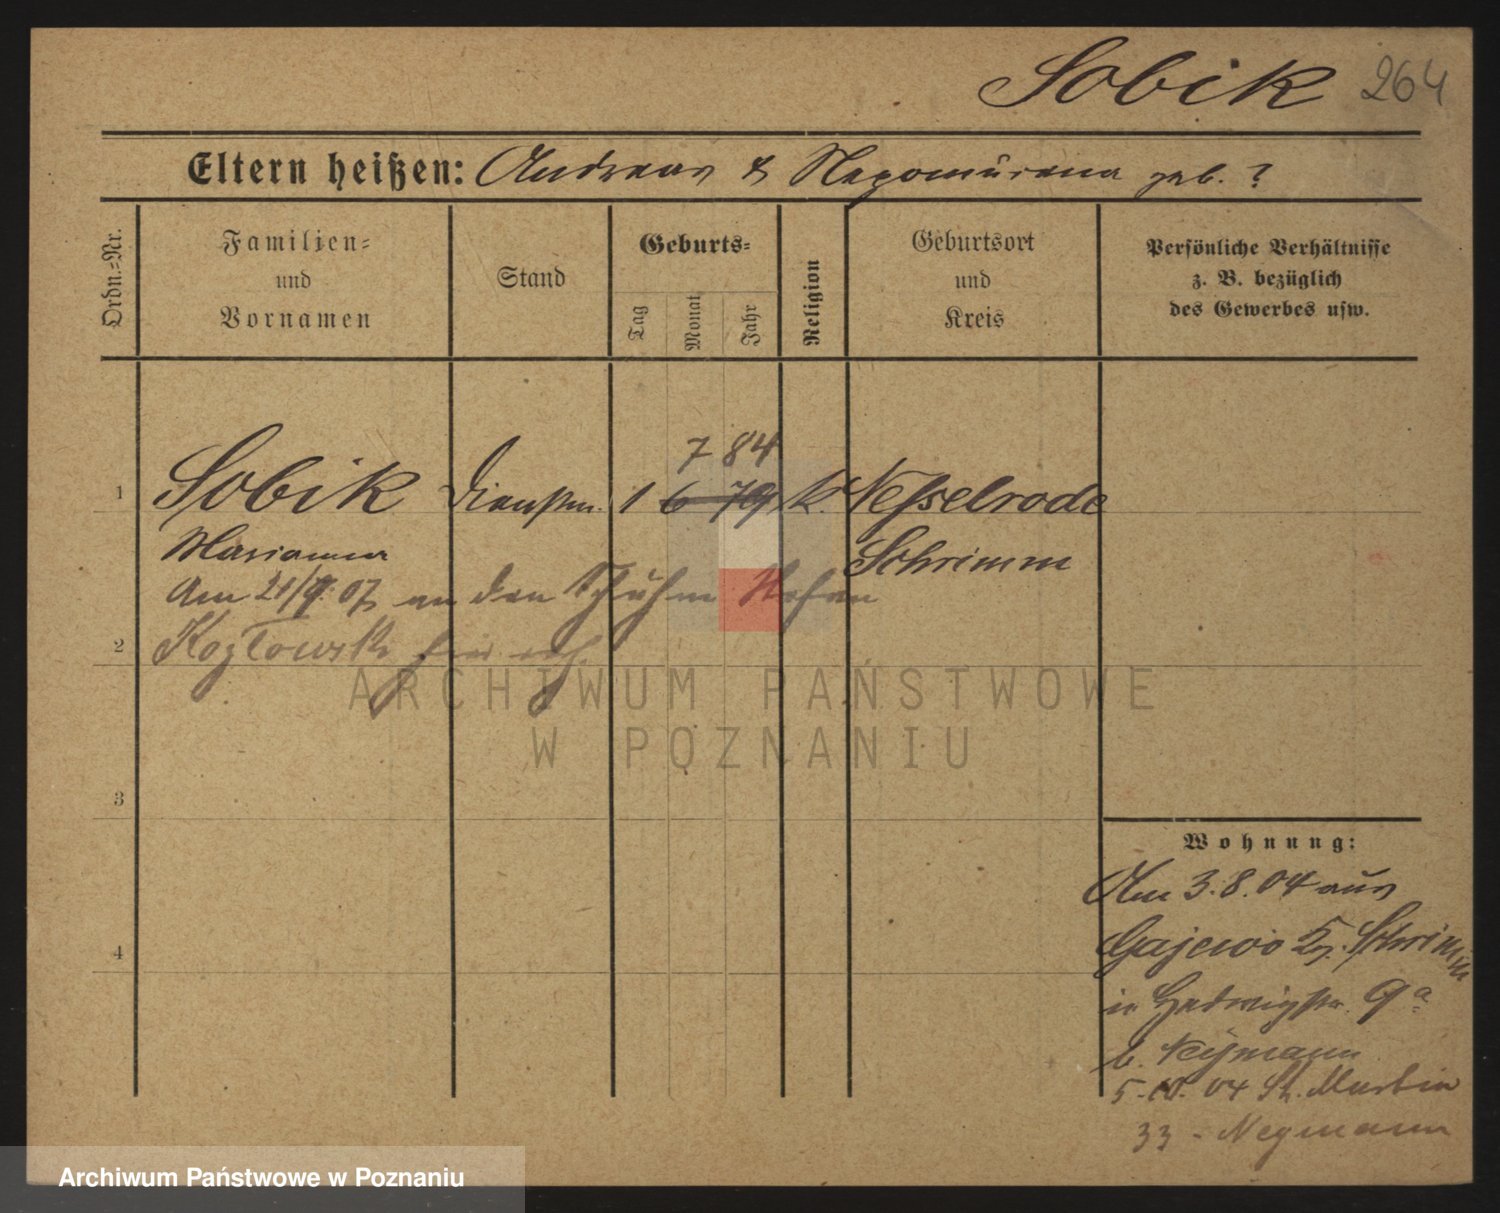 Sobik 264
Eltern heißen: Andreas & Nepomucena geb. ?
Ordn.-Nr.
Familien- und Vornamen
Stand
Geburts-
Tag Monat Jahr
Religion
Geburtsort und Kreis
Persönliche Verhältnisse
z. B. bezüglich
des Gewerbes usw.
7 84
1 Sobik Dienstm. 1 6 79 k. Nesselrode
Marianna Schrimm
Am 21/9 07 an den Schuhm
2 Kozlowski
3
4
Wohnung:
Am 3.8.04 aus
Gajewo Kr. Schrimm
in Hedwigstr. 9a
b. Neymann
5.10.04 St. Martin
33 - Neymann
ARCHIWUM PAŃSTWOWE
W POZNANIU
Archiwum Państwowe w Poznaniu